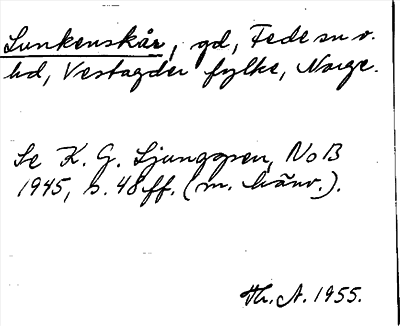 Lunkenskår, gd, Fede sn o.
hd, Vestagder fylke, Norge.
Se K. G. Ljunggren, NoB
1945, s. 48 ff. (m. hänv.).
Th. A. 1955.